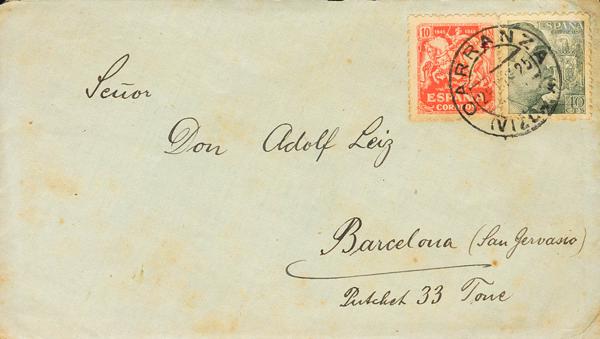 10 1945 1946
ESPAÑA
CORREOS
ESPAÑA
40
CARRANZA
25
(VIZCAYA)
Señor
Don Adolf Leiz
Barcelona (San Gervasio)
Putchet 33 Torre